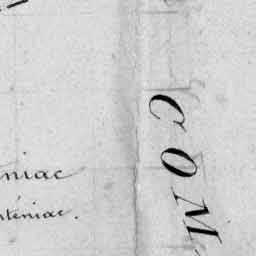 niac
nténiac.
COM